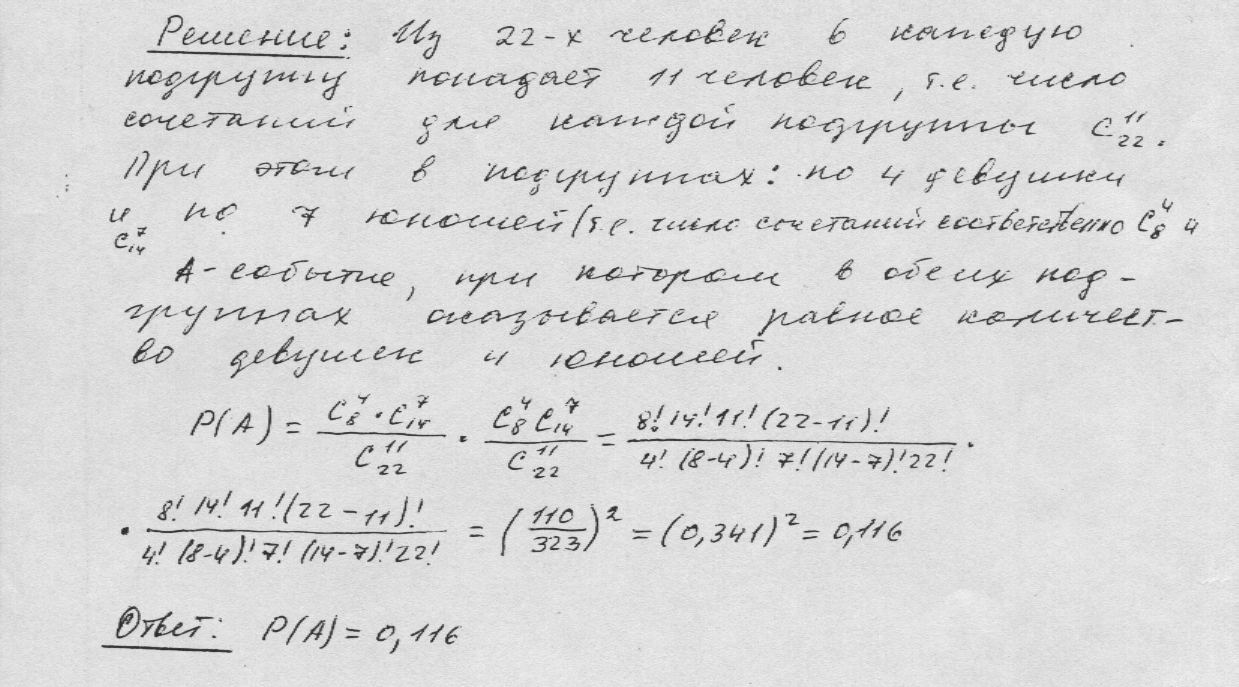 Решение: Из 22-х человек в каждую
подгруппу попадает 11 человек, т.е. число
сочетаний для каждой подгруппы C₂₂¹¹.
При этом в подгруппах: по 4 девушки
и по 7 юношей (т.е. число сочетаний соответственно C₈⁴ и
C₁₄⁷
A - событие, при котором в обеих под-
группах оказывается равное количест-
во девушек и юношей.
P(A) = (C₈⁴ · C₁₄⁷)/(C₂₂¹¹) · (C₈⁴ C₁₄⁷)/(C₂₂¹¹) = (8! 14! 11! (22-11)!)/(4! (8-4)! 7! (14-7)! 22!) ·
· (8! 14! 11! (22-11)!)/(4! (8-4)! 7! (14-7)! 22!) = (110/323)² = (0,341)² = 0,116
Ответ: P(A) = 0,116